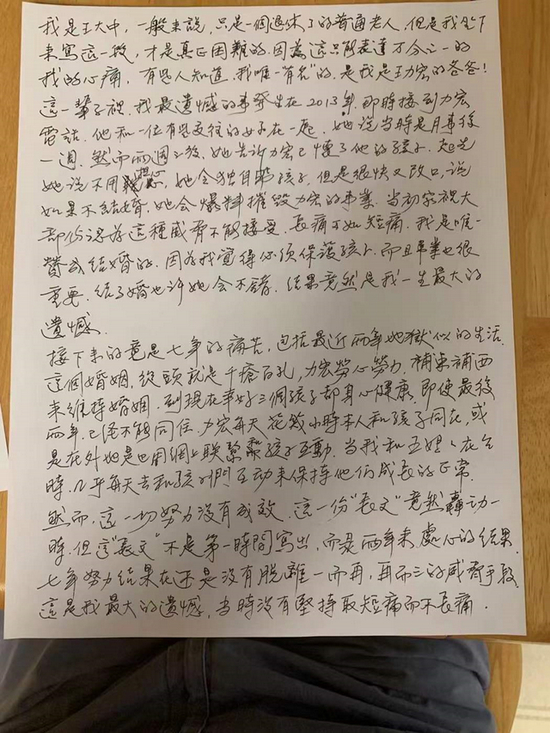 我是王大中，一般來說，只是一個退休了的普通老人，但是我坐下
來寫這一般，才是真正困難的，因為這只能表達萬分之一的
我的心痛，有些人知道，我唯一"有名"的，是我是王力宏的爸爸！
這一輩子裡，我最遺憾的事發生在2013年，那時接到力宏
電話，他和一位有些交往的女子在一起，她說當時是月事後
一週，然而兩週之後，她告訴力宏已懷了他的孩子，起先
她說不用擔心，她會獨自照顧孩子，但是很快又改口，說
如果不結婚，她會爆料摧毀力宏的事業，當初家裡大
部份認為這種威脅不能接受，長痛不如短痛，我是唯一
贊成結婚的，因為我覺得必須保護孩子，而且事業也很
重要，結了婚也許她會不錯，結果竟然是我一生最大的
遺憾．
接下來的竟是七年的痛苦，包括最近兩年地獄似的生活，
這個婚姻，從頭就是千瘡百孔，力宏勞心勞力，補東補西
來維持婚姻，到現在幸好三個孩子都身心健康，即使最後
兩年，已經不能同住，力宏每天花幾小時本人和孩子同在，或
是在外地也用網上聯繫和孩子互動，當我和五姐在台
時，几乎每天去和孩子們互動來保持他們成長的正常．
然而，這一切努力沒有成效，這一份"長文"竟然轟動一
時，但這"長文"不是第一時間寫出，而是兩年來處心的結果，
七年努力結果在還是沒有脫離一而再，再而三的威脅手段
這是我最大的遺憾，當時沒有堅持取短痛而不長痛．